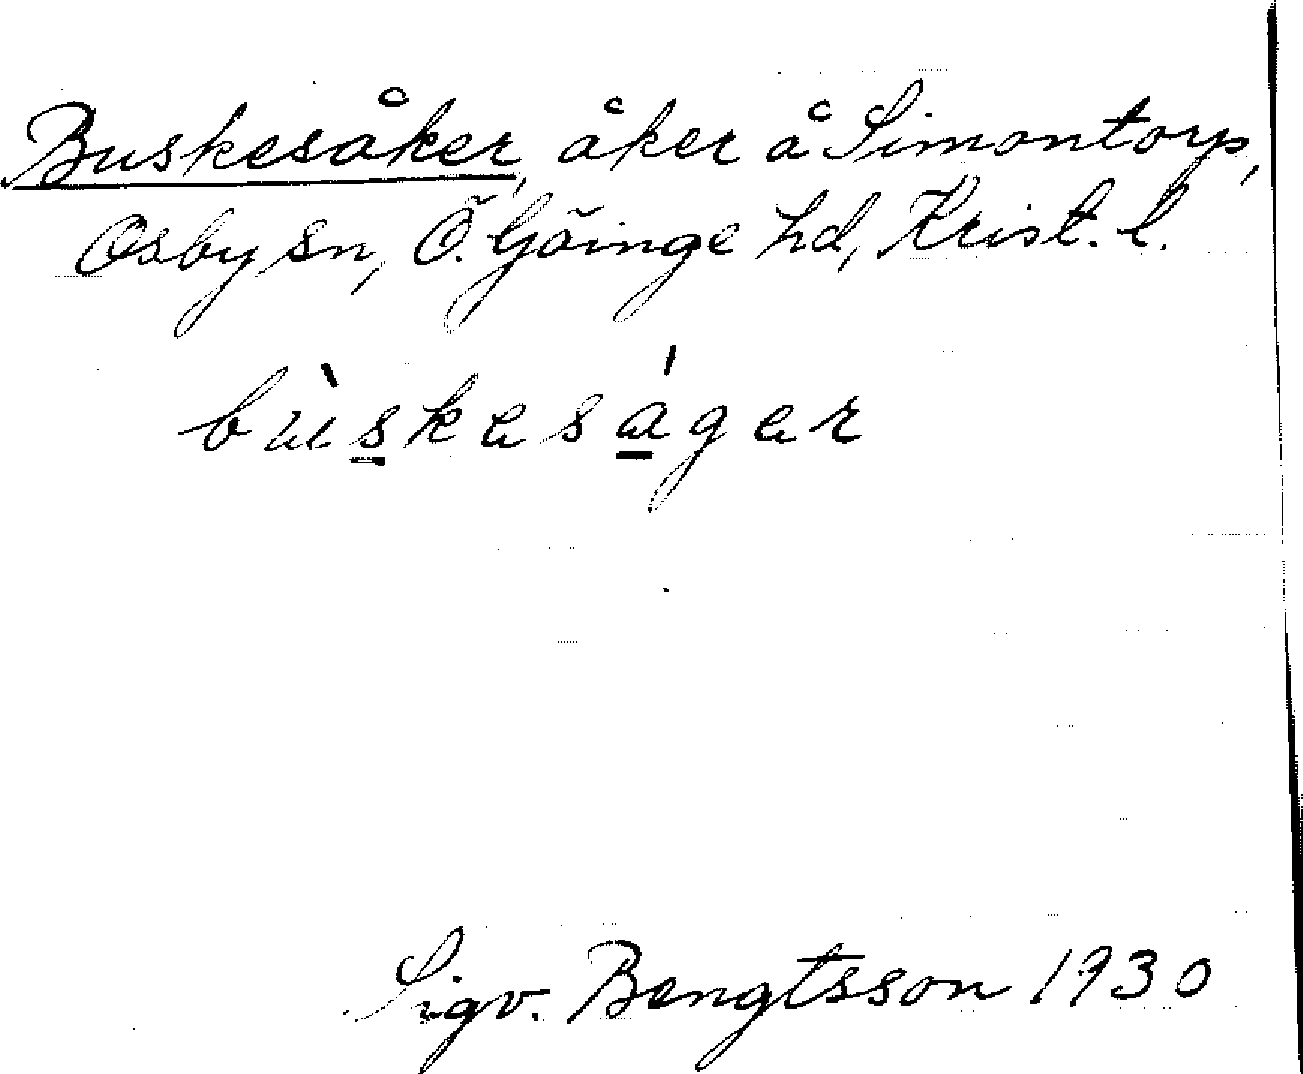 Buskesåker, åker å Simontorp,
Osby sn, Ö. Göinge hd, Krist. l.
bùskeságer
Sigv. Bengtsson 1930